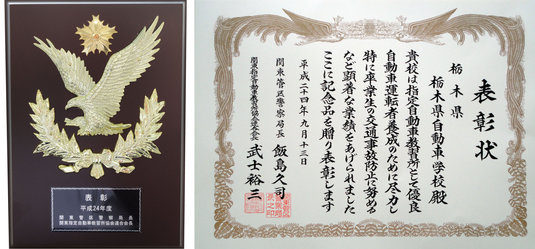 表彰
平成24年度
関東管区警察局長
関東指定自動車教習所協会連合会長
表彰状
栃木県
栃木県自動車学校殿
貴校は指定自動車教習所として優良
自動車運転者養成のために尽力し
特に卒業生の交通事故防止に努める
など顕著な業績をあげられました
ここに記念品を贈り表彰します
平成二十四年九月十三日
関東管区警察局長 飯島久司
関東指定自動車教習所協会連合会会長 武士裕三